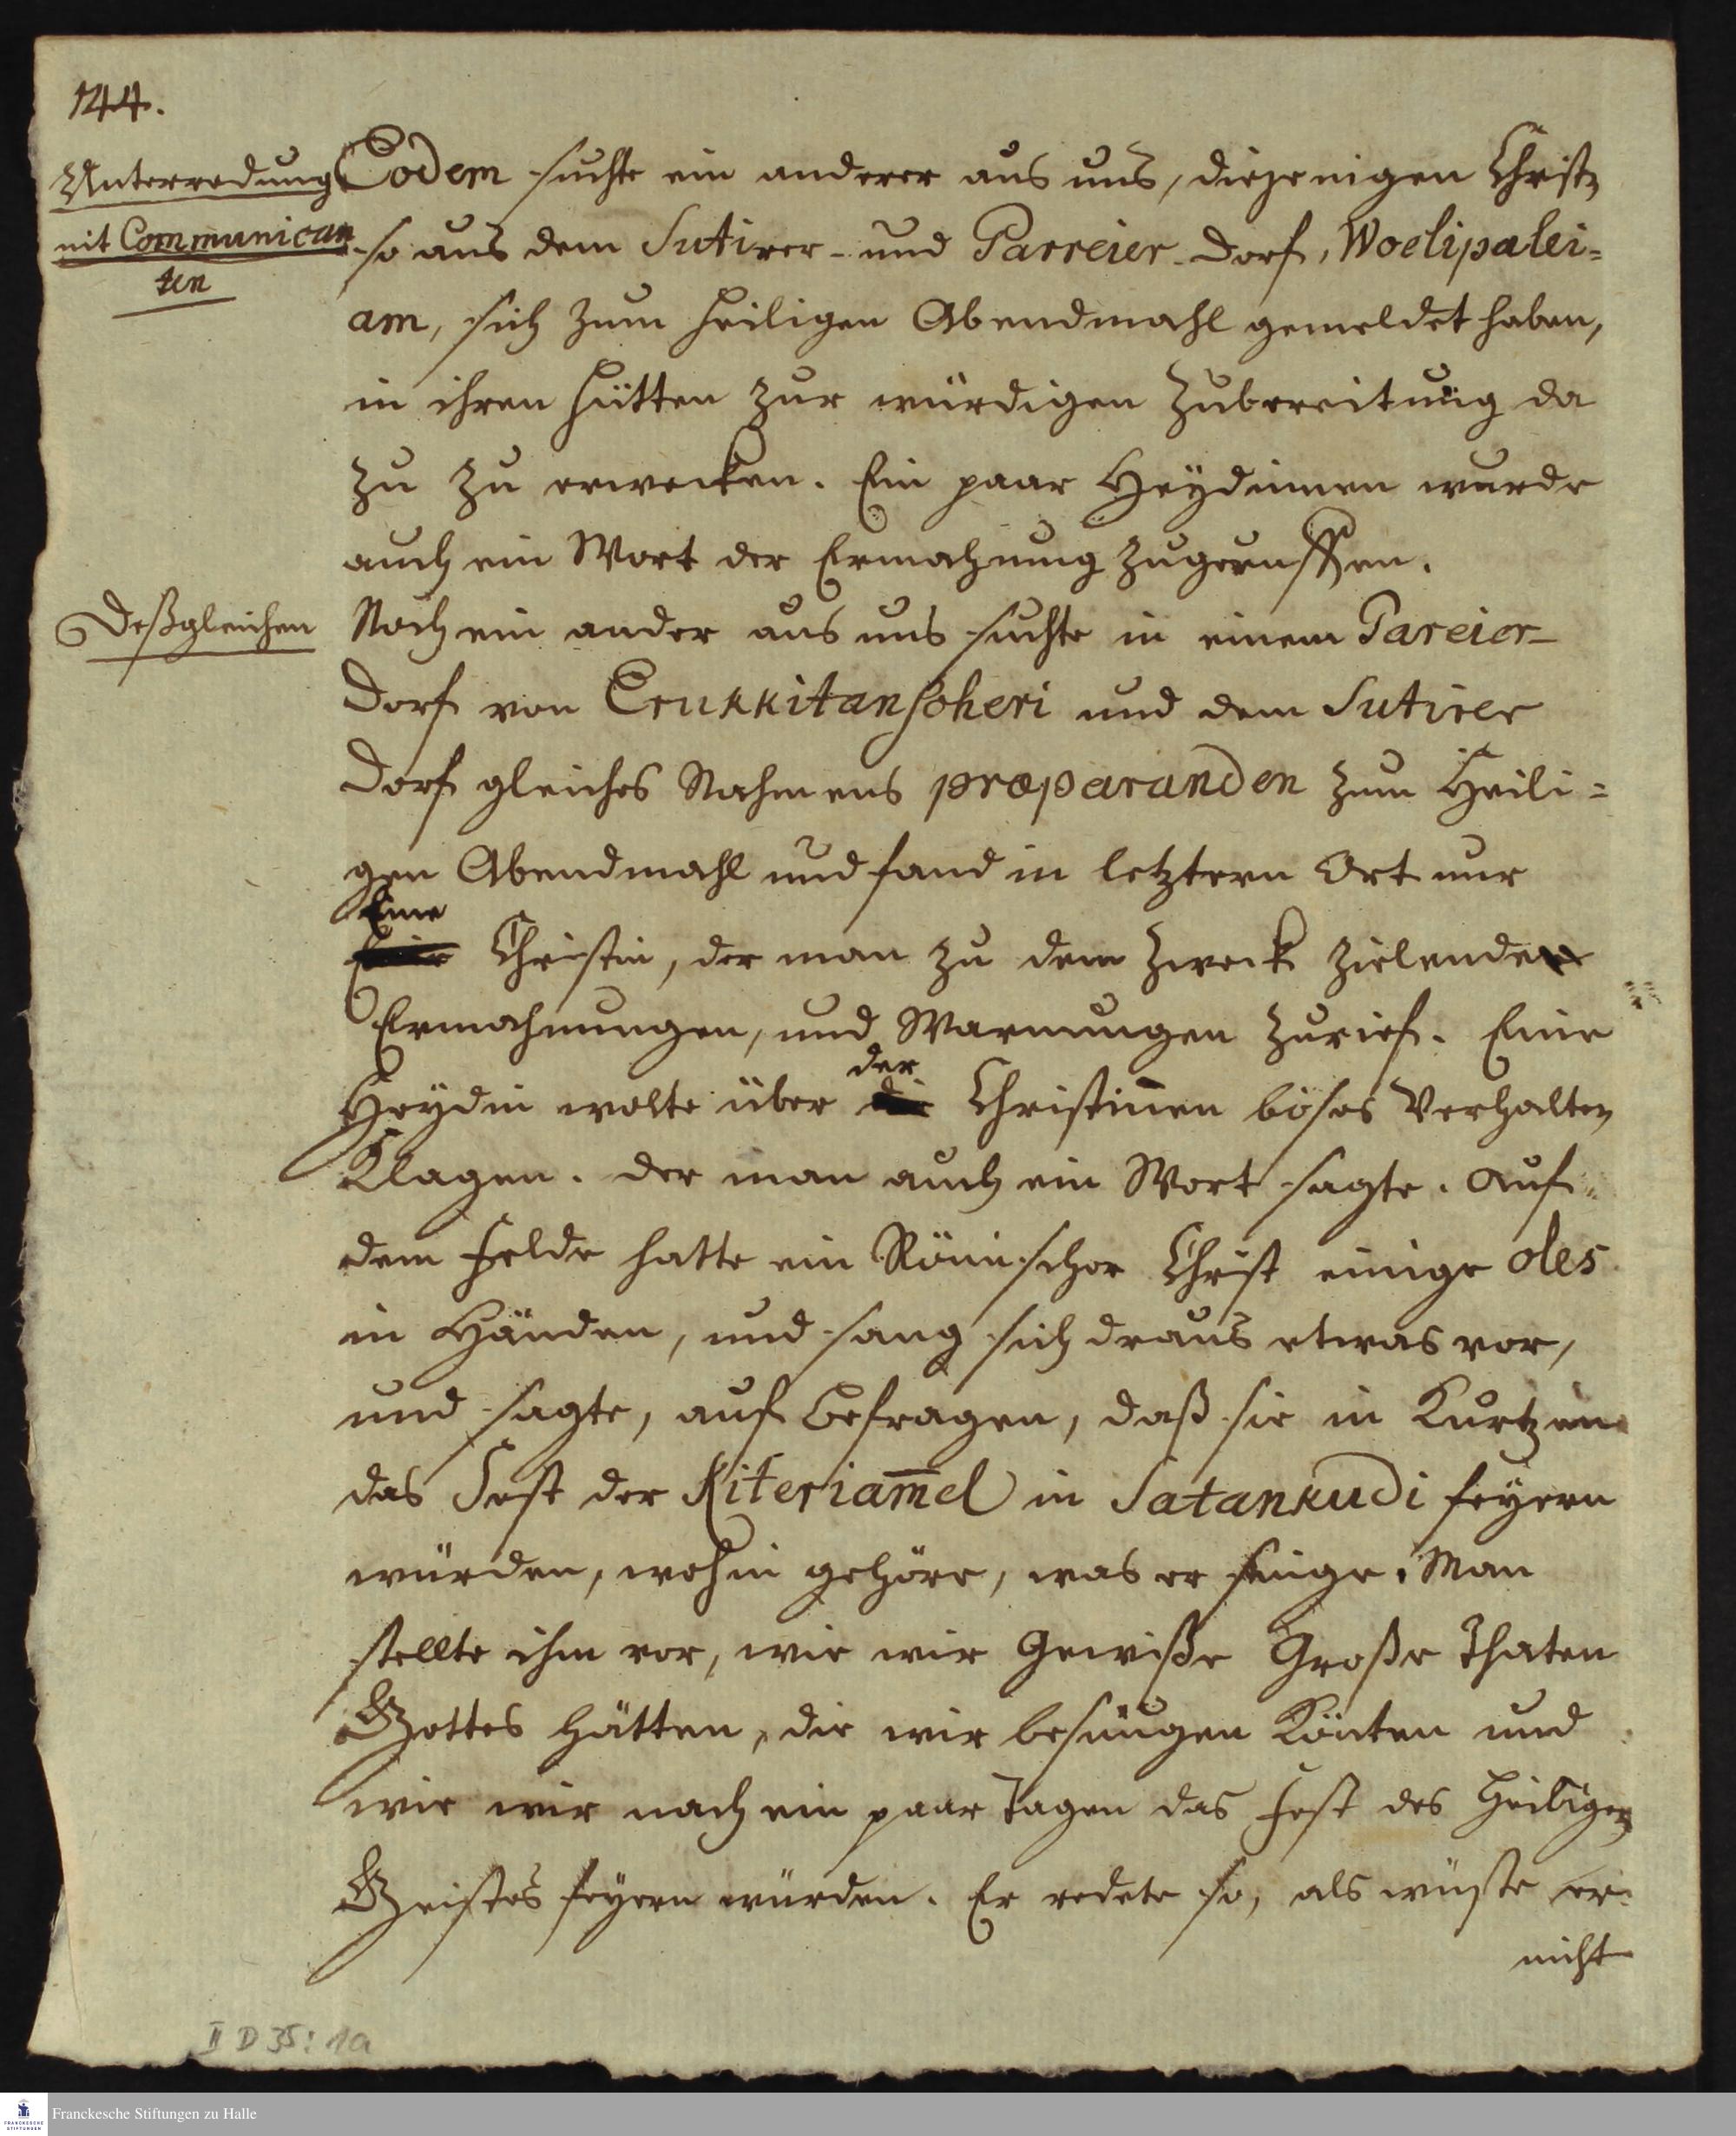 144.
Unterredung
mit Communican
ten
Eodem suchte ein anderer aus uns, diejenigen Christen
so aus dem Sutirer- und Parreier-Dorf, Woelipalei=
am, sich zum heiligen Abendmahl gemeldet haben,
in ihren Hütten zur würdigen Zubereitung da
zu zu erwecken. Ein paar Heydinnen wurde
auch ein Wort der Ermahnung zugeruffen.
Deßgleichen
Noch ein ander aus uns suchte in einem Pareier-
Dorf von Erukkitanscheri und dem Sutirer
Dorf gleiches Nahmens præparanden zum Heili=
gen Abendmahl und fand in letztern Ort nur
Eine
Christin, der man zu dem Zweck zielende
Ermahnungen, und Warnungen zurief. Eine
der
Heydin wolte über Christinnen böses Verhalten
Klagen. der man auch ein Wort sagte. Auf
dem Felde hatte ein Römischer Christ einige oles
in Händen, und sang sich draus etwas vor,
und sagte, auf Befragen, daß sie in Kurtzen
das Fest der Kiteriam̅el in Satankudi feyern
würden, wohin gehöre, was er singe. Man
stellte ihm vor, wie wir Gewiße Große Thaten
Gottes hätten, die wir besingen Könten und
wie wir nach ein paar Tagen das Fest des Heiligen
Geistes feyern würden. Er redete so, als wüste er
nicht
II D 35: 1a
Franckesche Stiftungen zu Halle